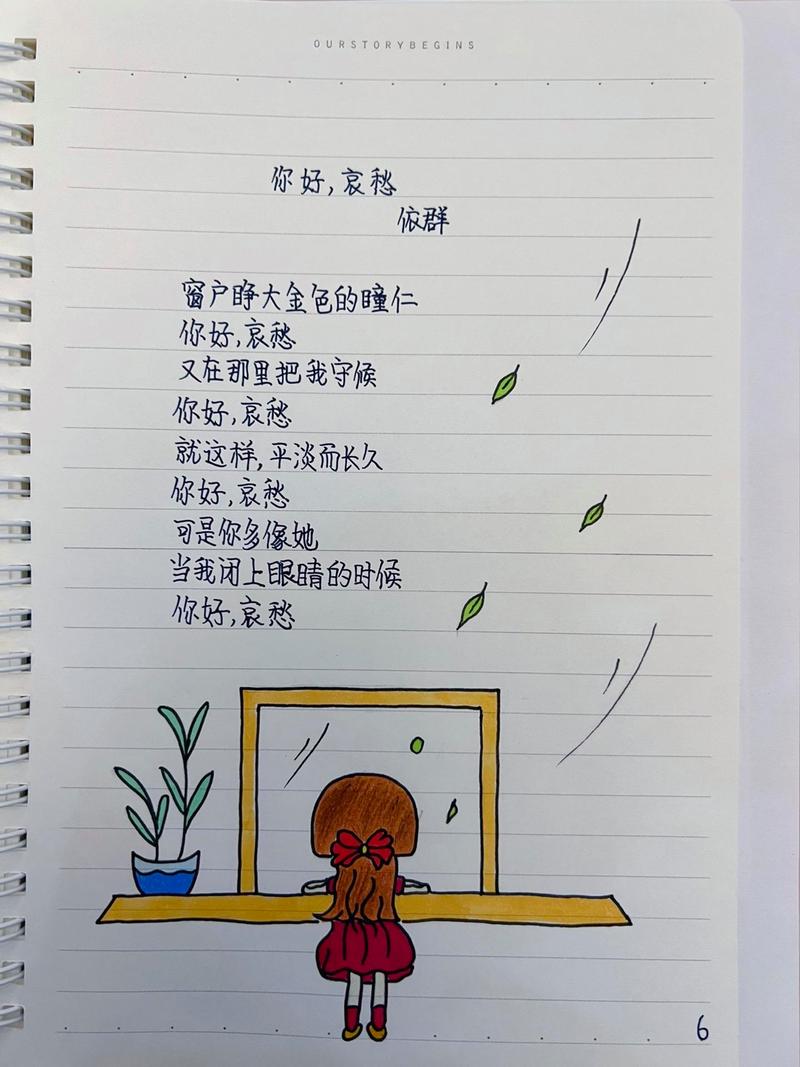 OURSTORYBEGINS
你好,哀愁
依群
窗户睁大金色的瞳仁
你好,哀愁
又在那里把我守候
你好,哀愁
就这样,平淡而长久
你好,哀愁
可是你多像她
当我闭上眼睛的时候
你好,哀愁
6